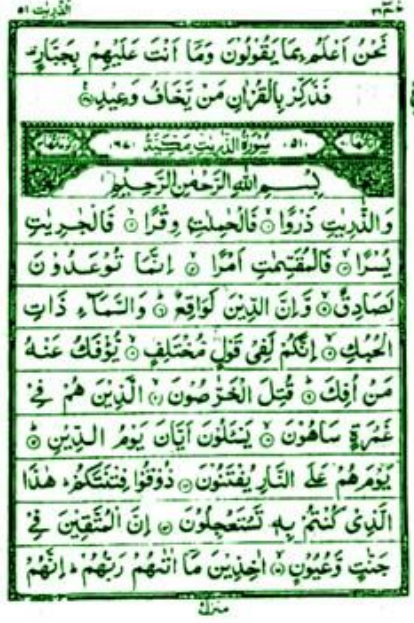 الذّٰریٰت ۵۱
حٰمٓ ۲۶
نَحْنُ اَعْلَمُ بِمَا یَقُوْلُوْنَ وَمَاۤ اَنْتَ عَلَیْهِمْ بِجَبَّارٍ
فَذَكِّرْ بِالْقُرْاٰنِ مَنْ یَّخَافُ وَعِیْدِ
سُوْرَةُ الذّٰرِیٰتِ مَكِّیَّةٌ
بِسْمِ اللّٰهِ الرَّحْمٰنِ الرَّحِیْمِ
وَالذّٰرِیٰتِ ذَرْوًا ۱ فَالْحٰمِلٰتِ وِقْرًا ۲ فَالْجٰرِیٰتِ
یُسْرًا ۳ فَالْمُقَسِّمٰتِ اَمْرًا ۴ اِنَّمَا تُوْعَدُوْنَ
لَصَادِقٌ ۵ وَّاِنَّ الدِّیْنَ لَوَاقِعٌ ۶ وَالسَّمَآءِ ذَاتِ
الْحُبُكِ ۷ اِنَّكُمْ لَفِیْ قَوْلٍ مُّخْتَلِفٍ ۸ یُّؤْفَكُ عَنْهُ
مَنْ اُفِكَ ۹ قُتِلَ الْخَرّٰصُوْنَ ۱۰ الَّذِیْنَ هُمْ فِیْ
غَمْرَةٍ سَاهُوْنَ ۱۱ یَسْـَٔلُوْنَ اَیَّانَ یَوْمُ الدِّیْنِ ۱۲
یَوْمَ هُمْ عَلَی النَّارِ یُفْتَنُوْنَ ۱۳ ذُوْقُوْا فِتْنَتَكُمْ هٰذَا
الَّذِیْ كُنْتُمْ بِهٖ تَسْتَعْجِلُوْنَ ۱۴ اِنَّ الْمُتَّقِیْنَ فِیْ
جَنّٰتٍ وَّعُیُوْنٍ ۱۵ اٰخِذِیْنَ مَاۤ اٰتٰىهُمْ رَبُّهُمْ اِنَّهُمْ